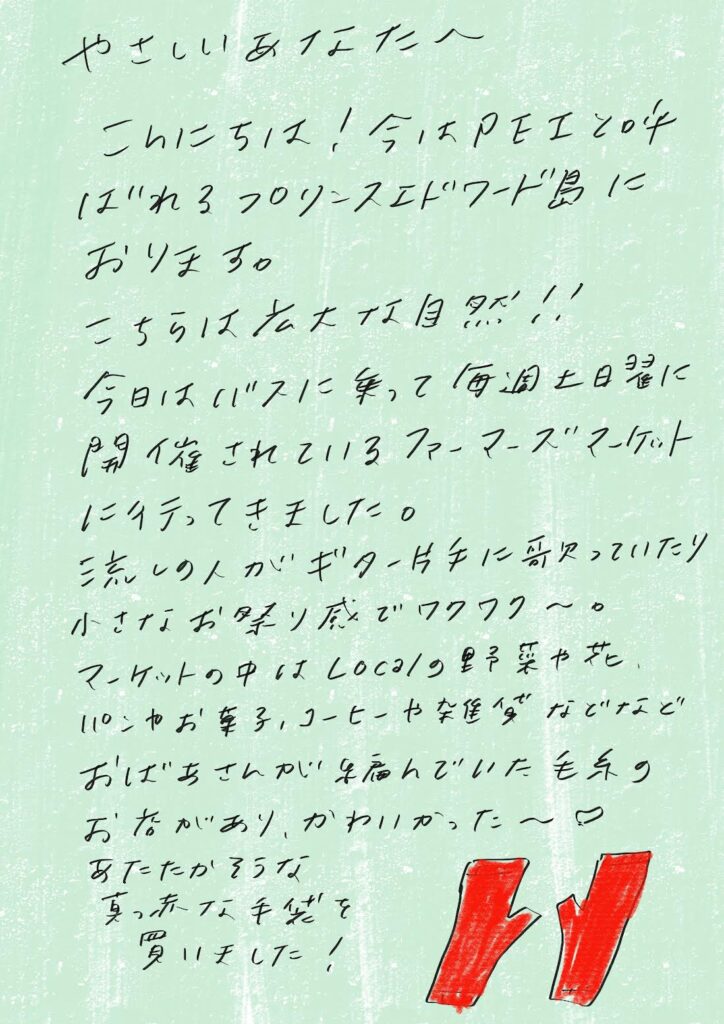 やさしいあなたへ
こんにちは！今はPEIと呼
ばれるプリンスエドワード島に
おります。
こちらは広大な自然！！
今日はバスに乗って毎週土日曜に
開催されているファーマーズマーケット
に行ってきました。
流しの人がギター片手に歌っていたり
小さなお祭り感でワクワク〜。
マーケットの中はLocalの野菜や花、
パンやお菓子、コーヒーや雑貨などなど
おばあさんが編んでいた毛糸の
お店があり、かわいかった〜♡
あたたかそうな
真っ赤な手袋を
買いました！